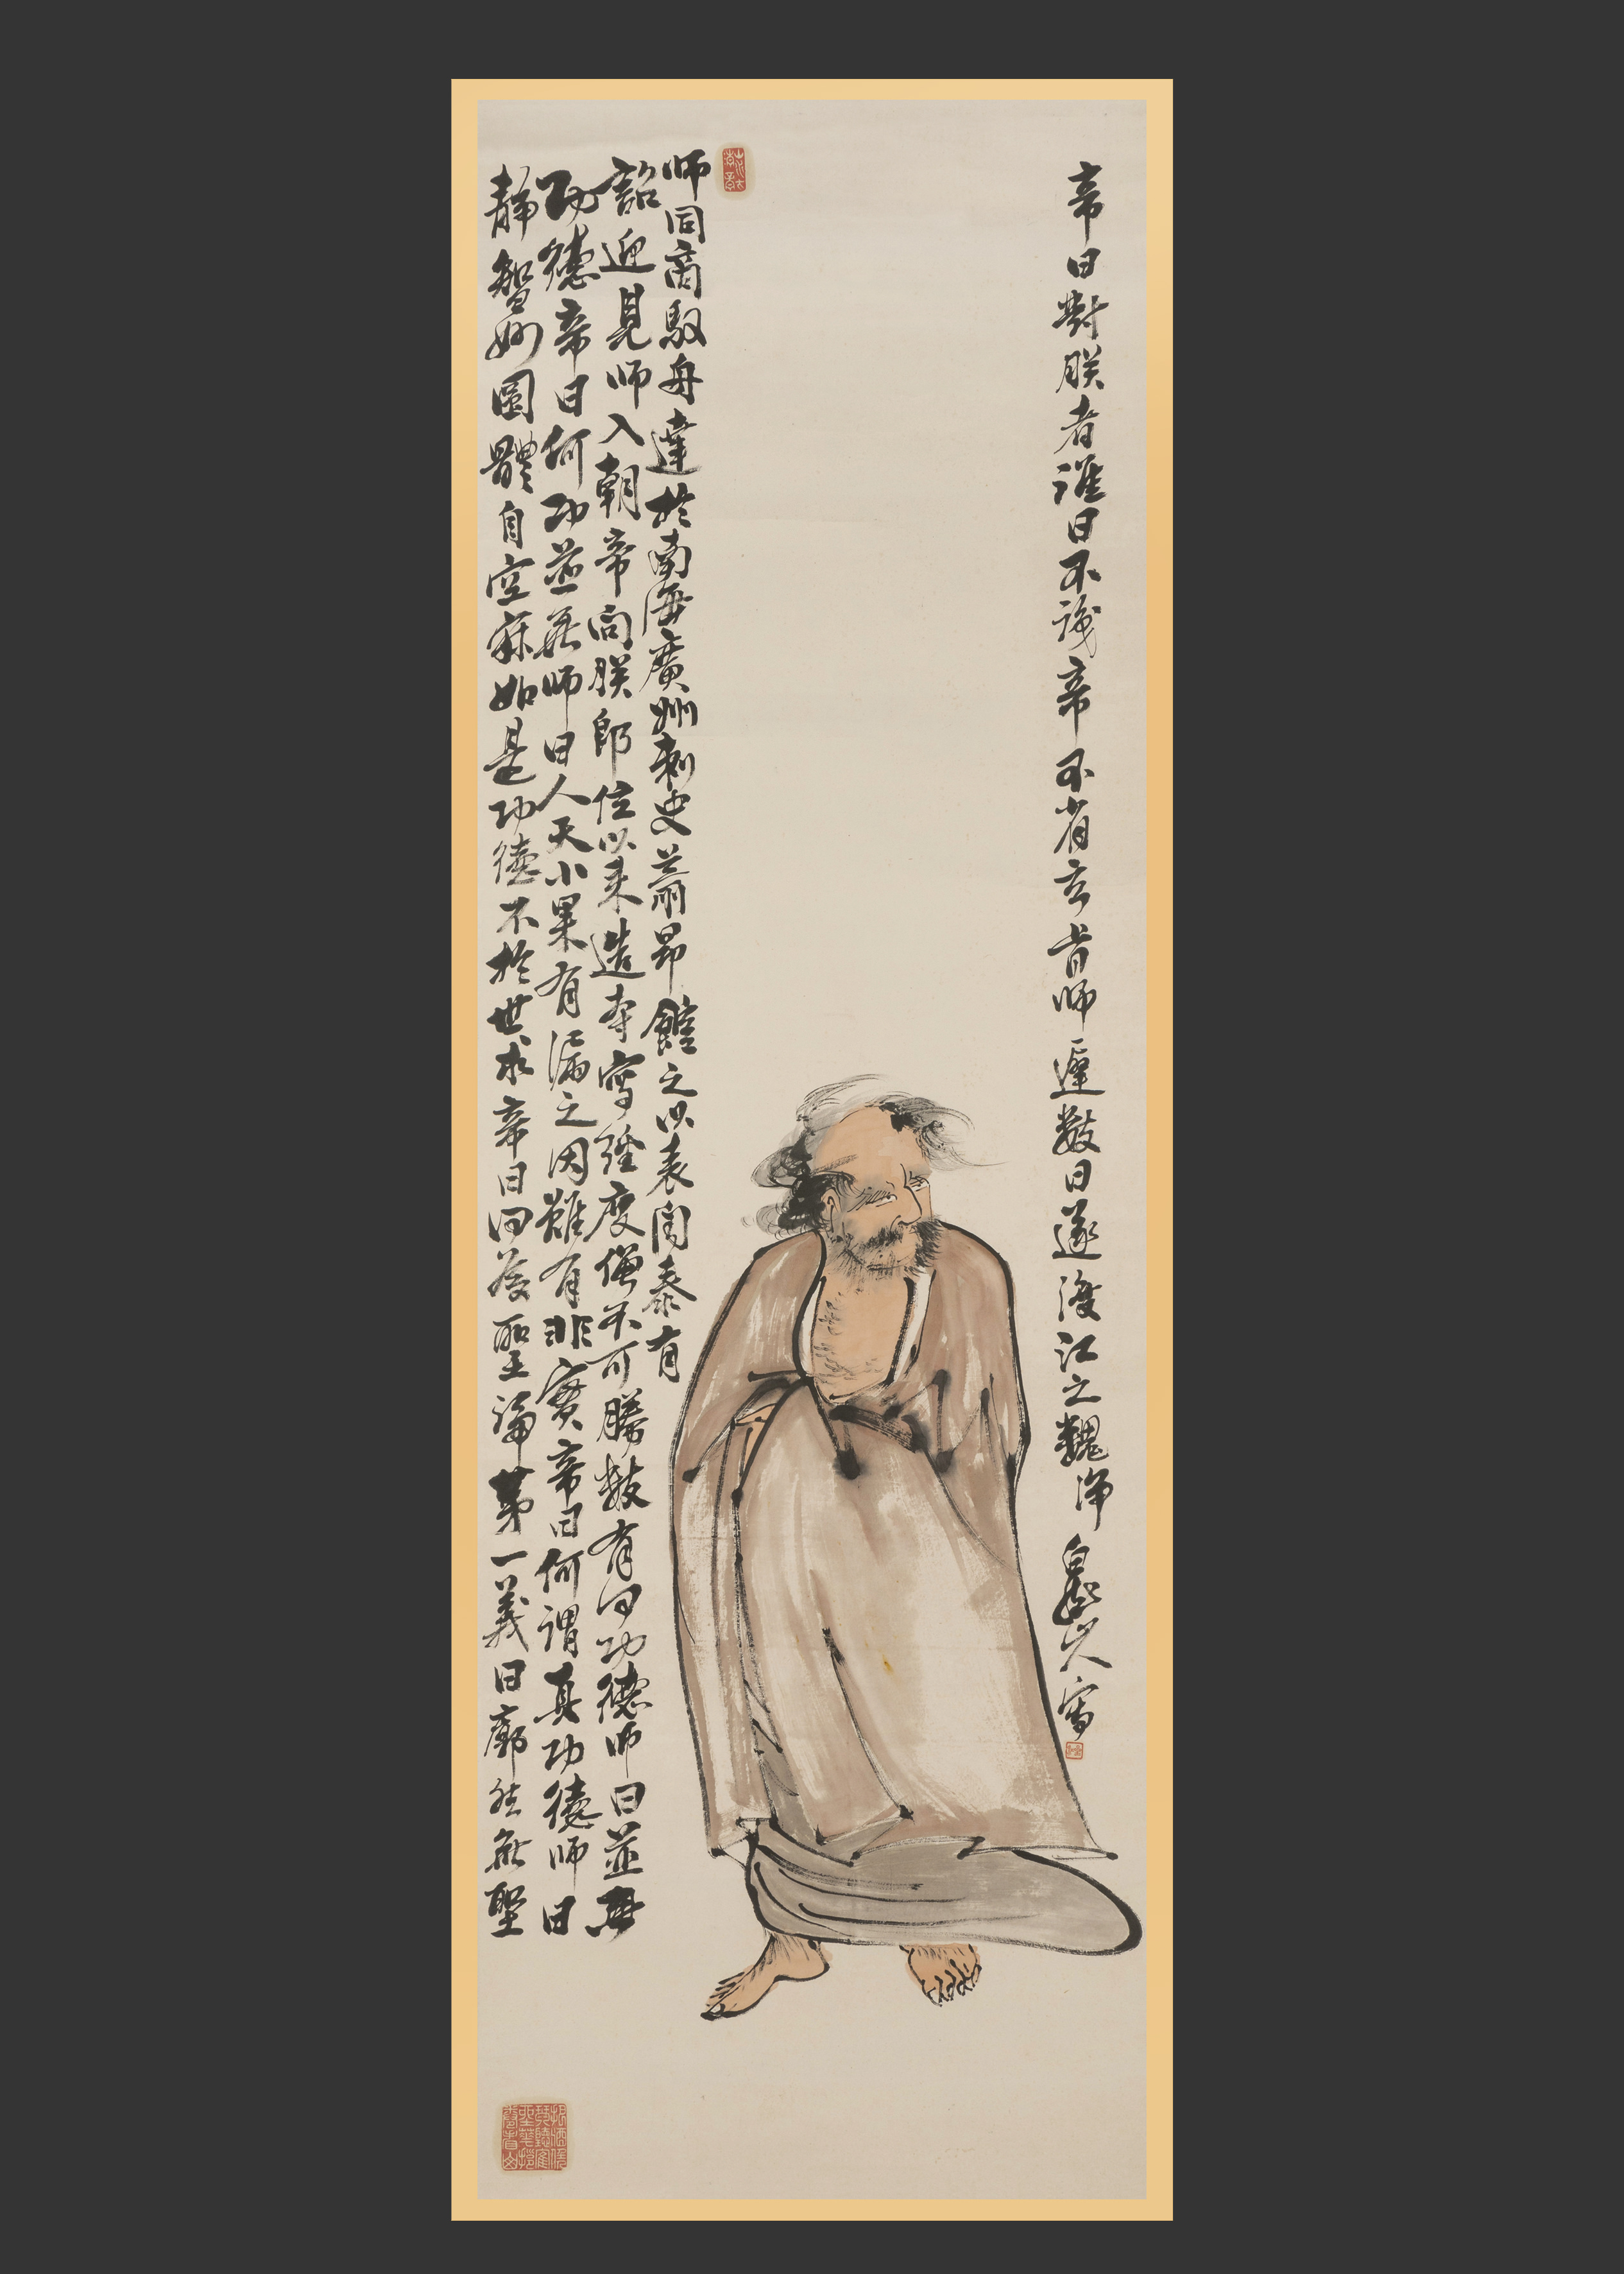 師同商馭舟達於南海廣州刺史蕭昂館之以表聞奏有
詔迎見師入朝帝問朕即位以来造寺寫經度僧不可勝數有何功德師曰並無
功德帝曰何功並無師曰人天小果有漏之因雖有非實帝曰何謂真功德師曰
靜智妙圓體自空寂如是功德不於世求帝曰何為聖諦第一義曰廓然無聖
帝曰對朕者誰曰不識帝不省玄旨師遲數日遂渡江之魏 白龍山人寫